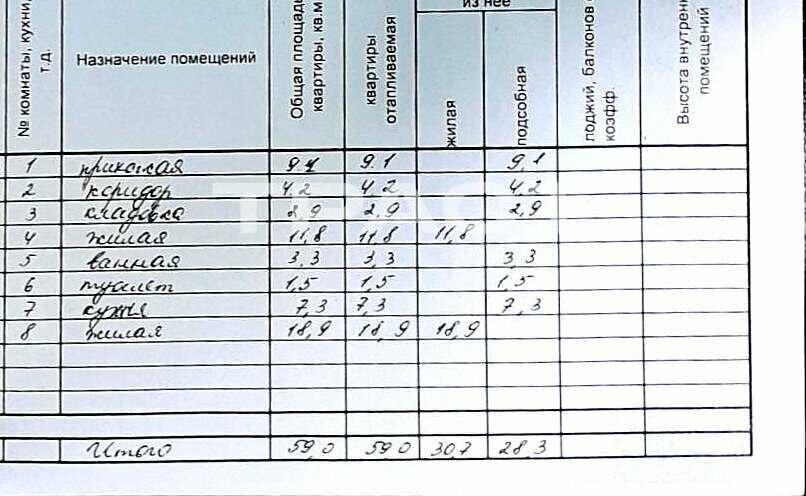 № комнаты, кухни, т.д.
Назначение помещений
Общая площадь квартиры, кв.м
квартиры отапливаемая
из нее
жилая
подсобная
лоджий, балконов с коэфф.
Высота внутрен помещений
1 прихожая 9.1 9.1 9,1
2 коридор 4.2 4,2 4,2
3 кладовка 2,9 2,9 2,9
4 жилая 11,8 11,8 11,8
5 ванная 3,3 3,3 3,3
6 туалет 1,5 1,5 1,5
7 кухня 7,3 7,3 7,3
8 жилая 18,9 18,9 18,9
Итого 59,0 59,0 30,7 28,3